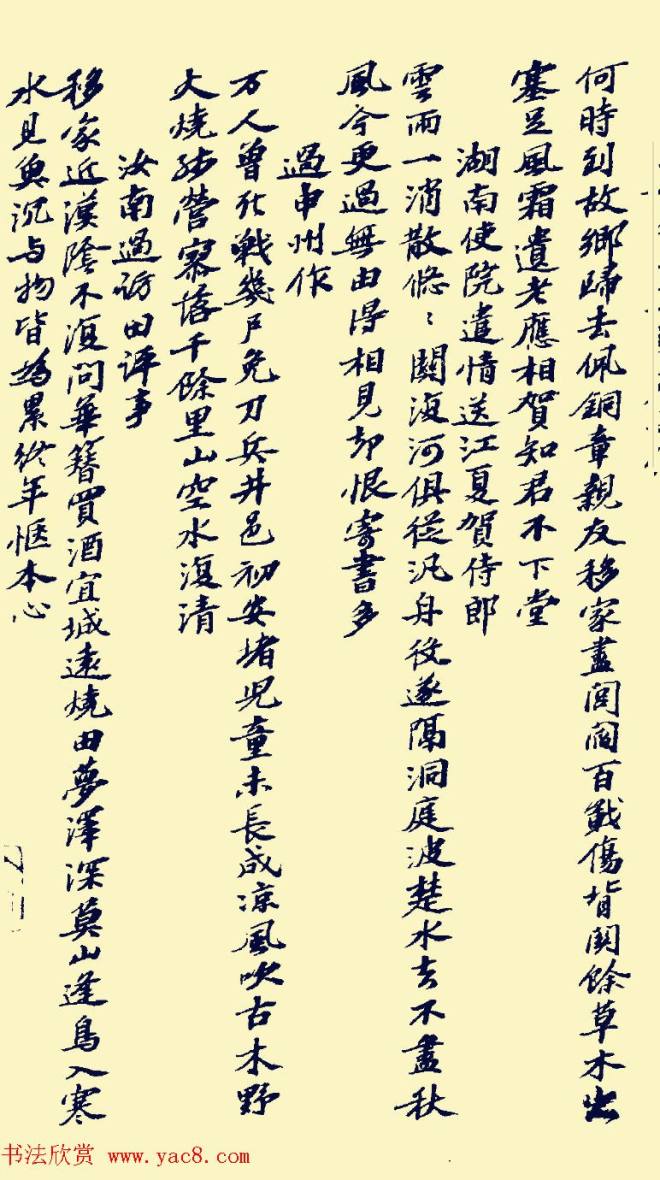 何時到故鄉歸去佩銅章親友移家盡閭閻百戰傷背関餘草木出
塞足風霜遺老應相賀知君不下堂
湖南使院遣情送江夏賀侍郎
雲雨一消散悠〻關復河俱從汎舟役遂隔洞庭波楚水去不盡秋
風今更過無由得相見却恨寄書多
過申州作
万人曾死戦幾戶免刀兵井邑初安堵兒童未長成凉風吹古木野
火燒殘營寥落千餘里山空水復清
汝南過訪田評事
移家近漢陰不復問華簪買酒宜城遠燒田夢澤深暮山逢鳥入寒
水見魚沉与物皆為累終年愜本心
书法欣赏 www.yac8.com